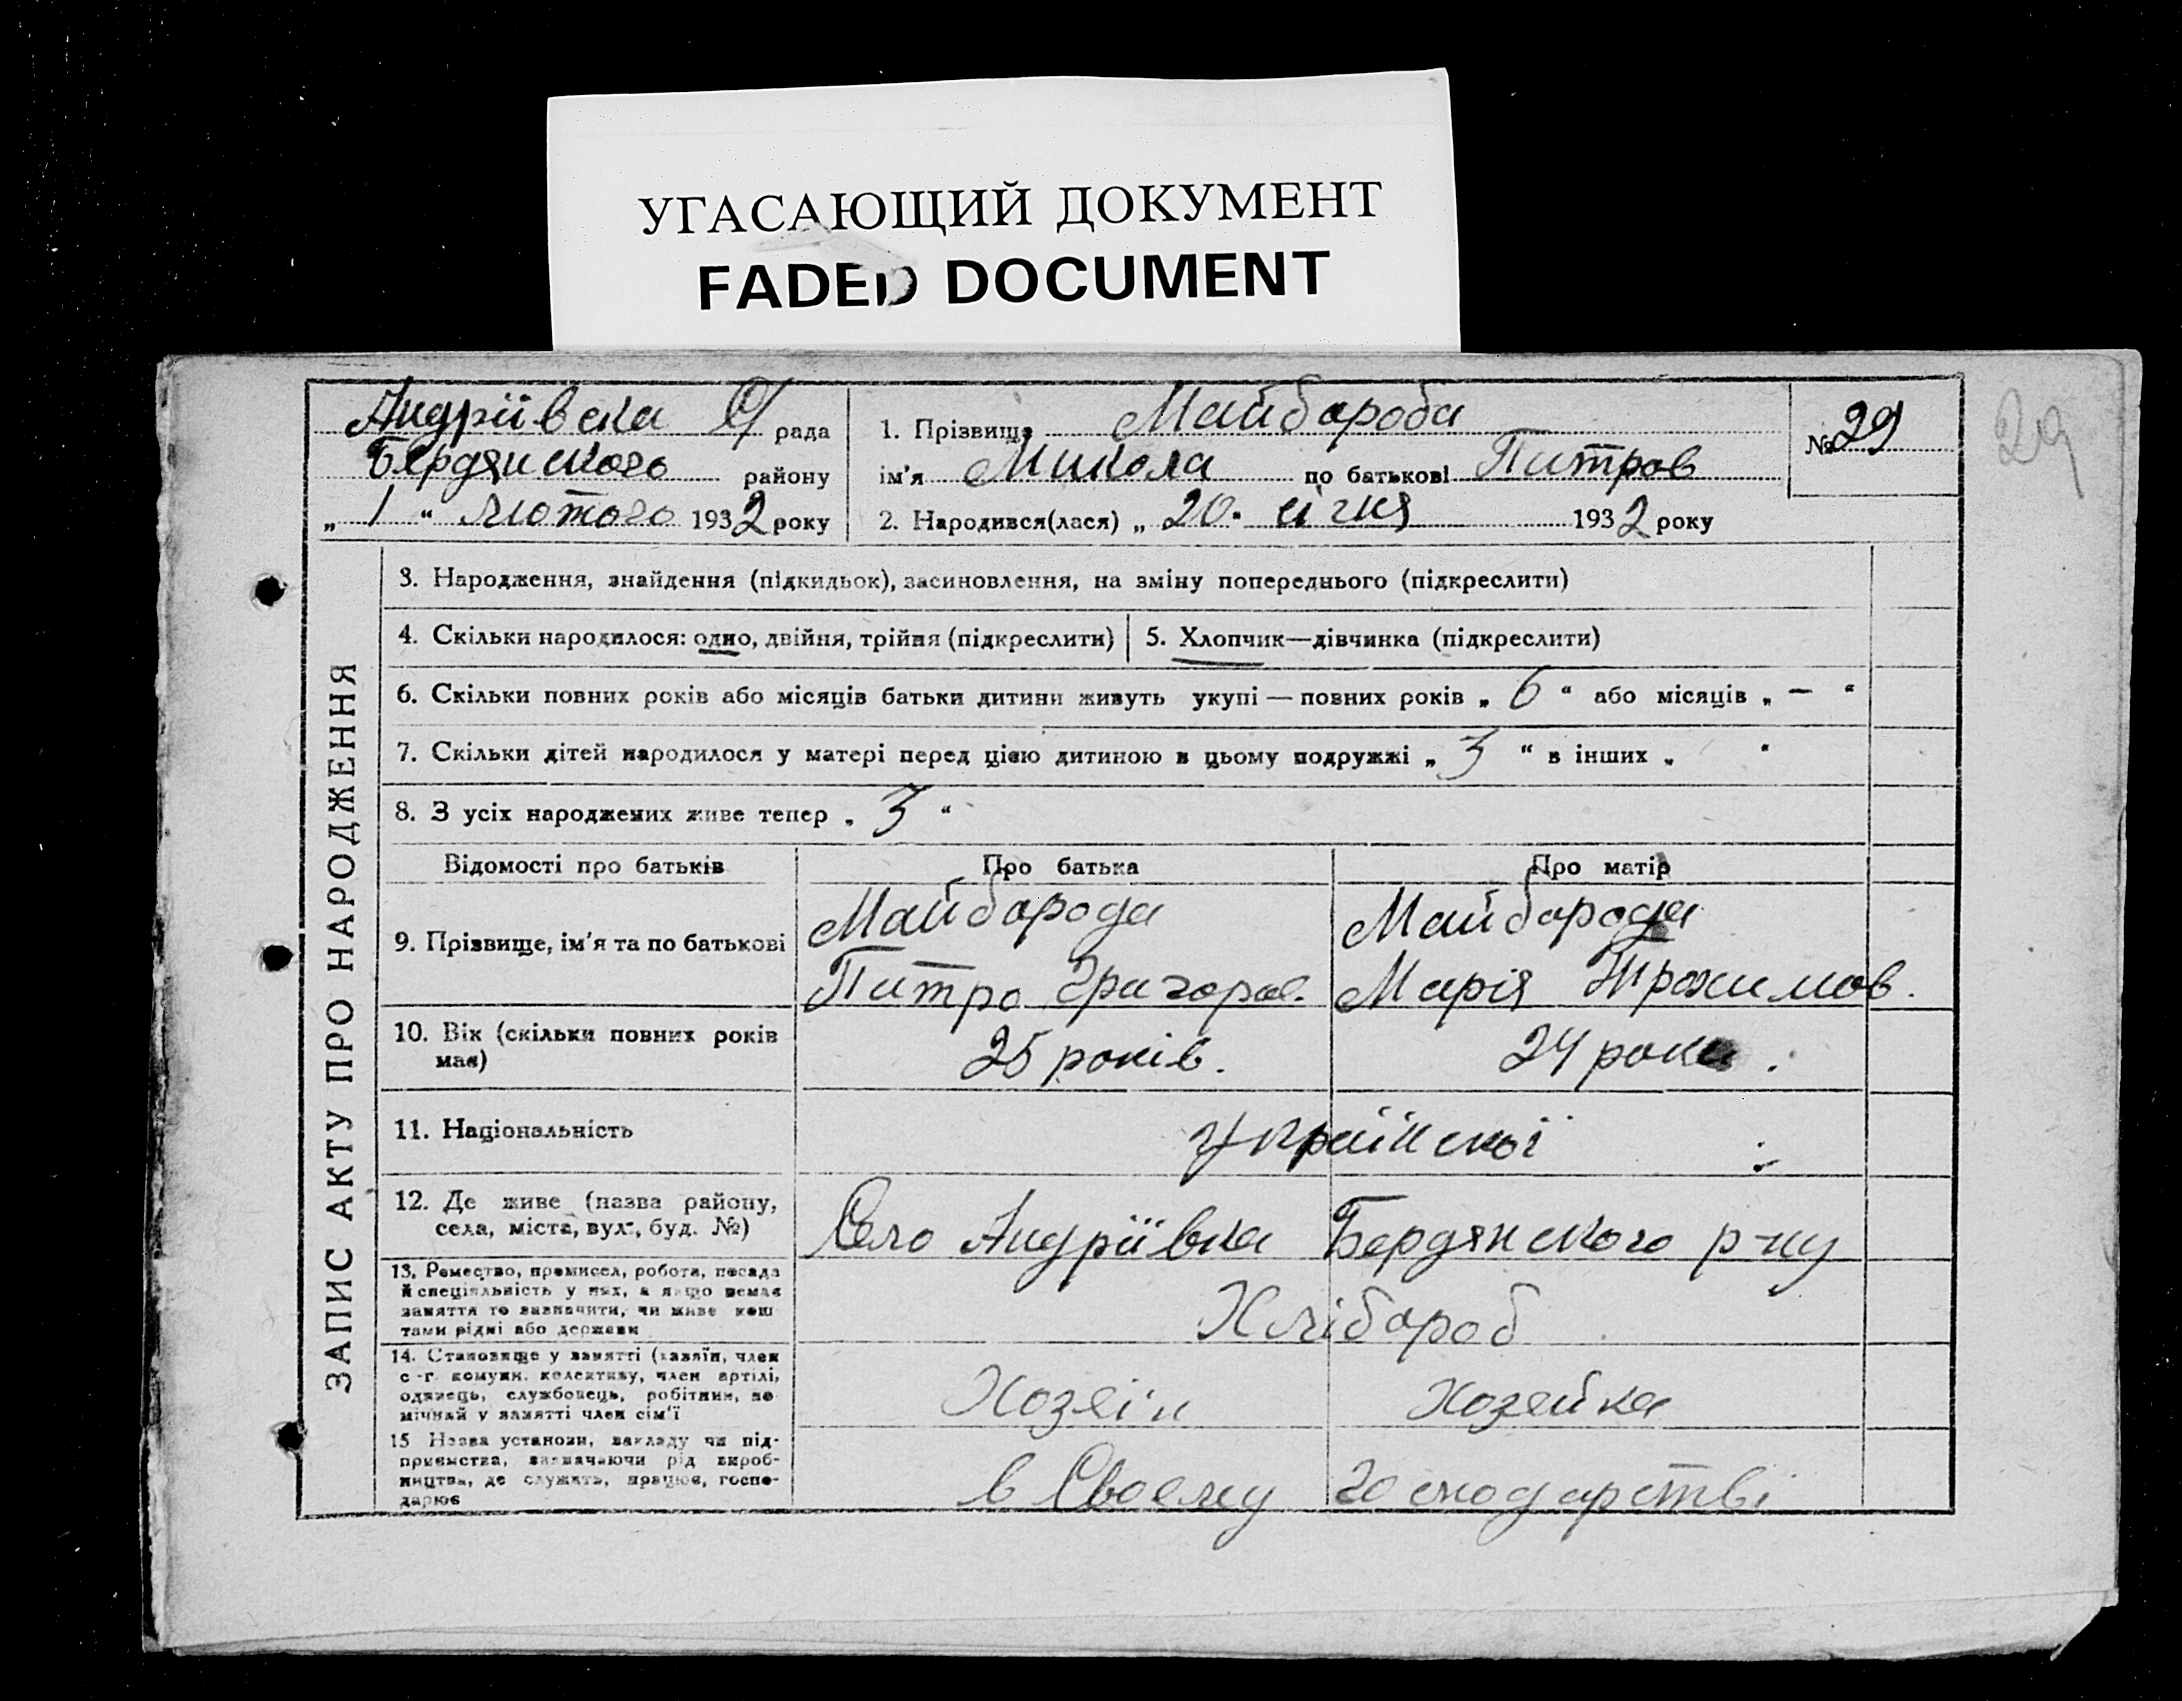 УГАСАЮЩИЙ ДОКУМЕНТ
FADED DOCUMENT
Андріівска С/ рада
Бердянского району
„ 1 “ лютого 1932 року
1. Прізвище Майбороба
ім’я Микола по батькові Питров
2. Народився(лася) „ 20. січня 1932 року
№ 29
29
ЗАПИС АКТУ ПРО НАРОДЖЕННЯ
3. Народження, знайдення (підкидьок), засиновлення, на зміну попереднього (підкреслити)
4. Скільки народилося: одно, двійня, трійня (підкреслити)
5. Хлопчик—дівчинка (підкреслити)
6. Скільки повних років або місяців батьки дитини живуть укупі — повних років „ 6 “ або місяців „ – “
7. Скільки дітей народилося у матері перед цією дитиною в цьому подружжі „ 3 “ в інших „ “
8. З усіх народжених живе тепер „ 3 “
Відомості про батьків
Про батька
Про матір
9. Прізвище, ім’я та по батькові
Майборода
Питро Григоров.
Майборода
Марія Трохимов.
10. Вік (скільки повних років
має)
25 років.
24 роки.
11. Національність
украйнскоі
12. Де живе (назва району,
села, міста, вул., буд. №)
Село Андріівка Бердянского р-ну
13. Ремество, промисел, робота, посада
й спеціяльність у них, а якщо немає
заняття то зазначити, чи живе кош
тами рідні або держави
Хлібороб
14. Становище у занятті (хазяїн, член
с.-г. комуни, колективу, член артілі,
одинець, службовець, робітник, по
мічний у занятті член сім’ї
Хозяін
Хозяйка
15 Назва установи, закладу чи під-
приємства, зазначаючи рід вироб-
ництва, де служить, працює, госпо-
дарює
в Своему господарстві